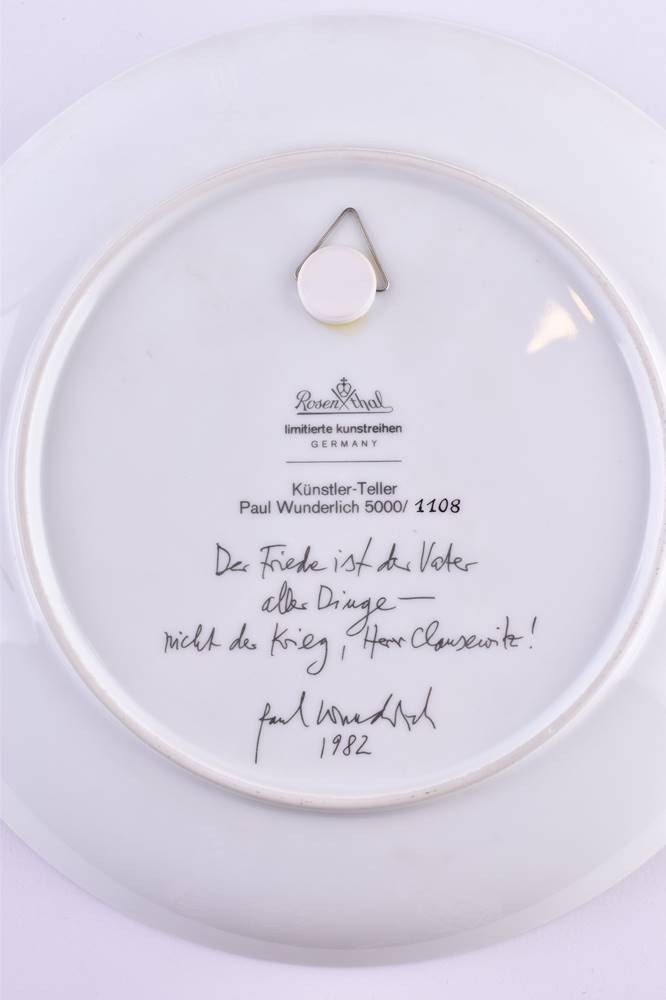 Rosenthal
limitierte kunstreihen
GERMANY
Künstler-Teller
Paul Wunderlich 5000/ 1108
Der Friede ist der Vater
aller Dinge —
nicht der Krieg, Herr Clausewitz!
Paul Wunderlich
1982